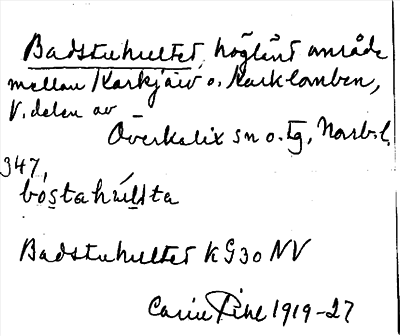 Badstuhultet, höglänt område
mellan Karkjärv o. Karklomben,
V. delen av
Överkalix sn o. tg, Norrb. l.
347,
bóstahúlta
Badstuhultet KG30 NV
Carin Pihl 1919-27